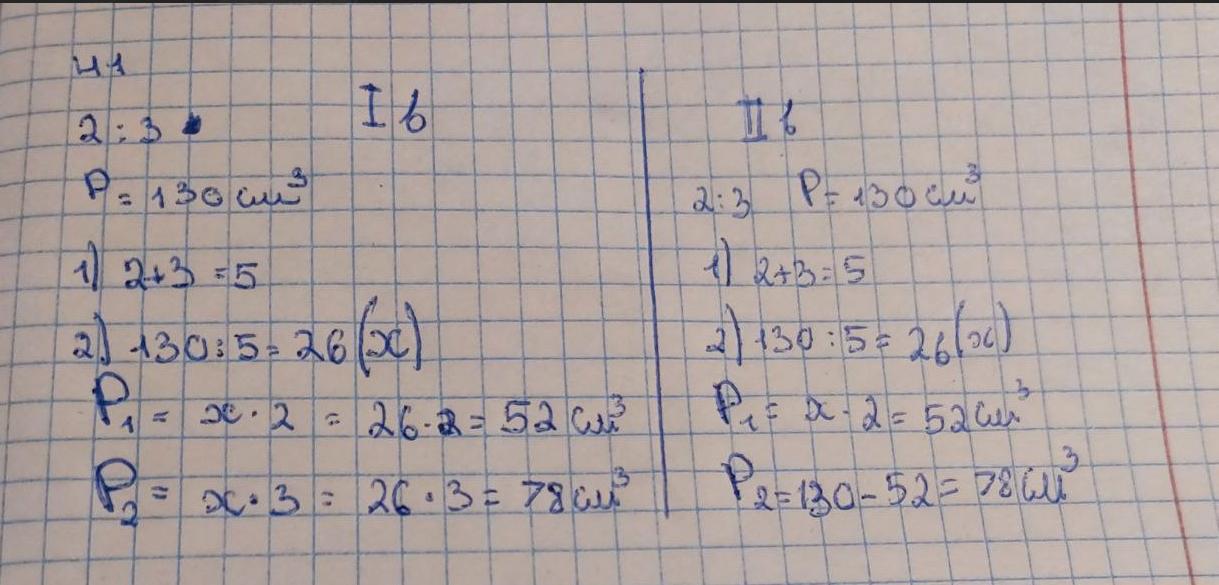 н1
I в
2 : 3
P = 130 см³
1) 2+3 = 5
2) 130 : 5 = 26 (x)
P₁ = x · 2 = 26 · 2 = 52 см³
P₂ = x · 3 = 26 · 3 = 78 см³
II в
2 : 3 P = 130 см³
1) 2+3 = 5
2) 130 : 5 = 26 (x)
P₁ = x · 2 = 52 см³
P₂ = 130 - 52 = 78 см³